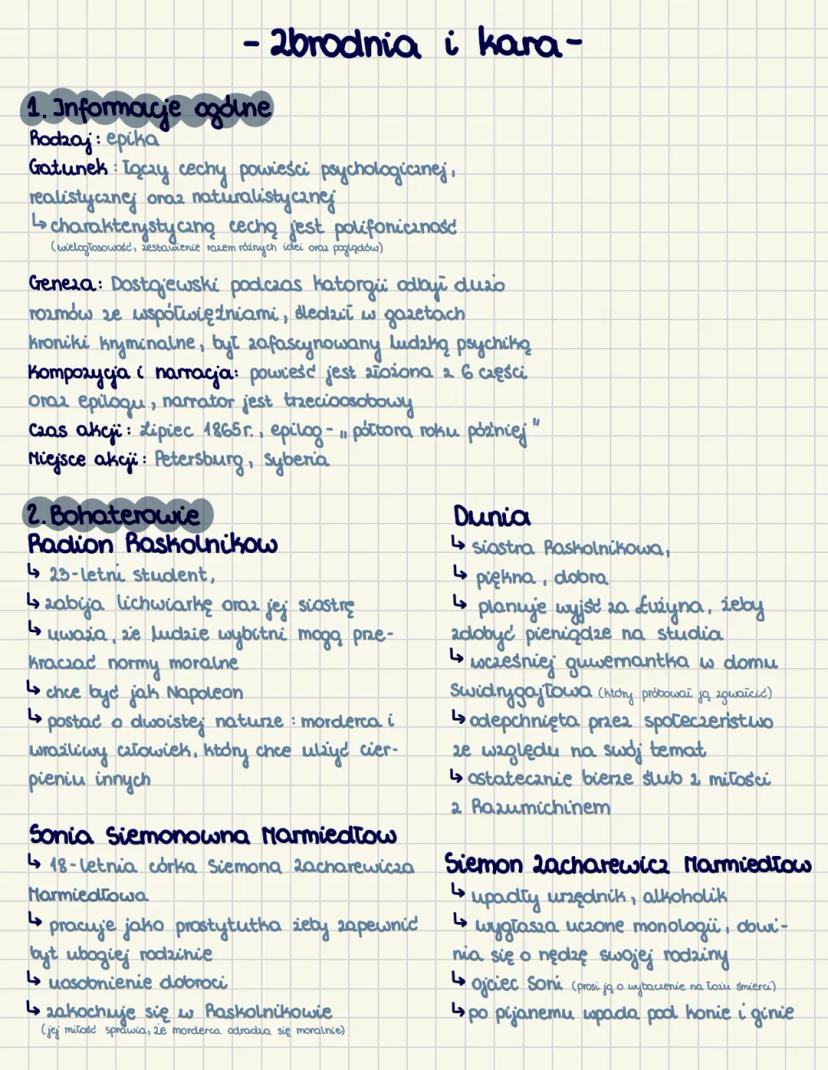 - Zbrodnia i kara-
1. Informacje ogólne
Rodzaj: epika
Gatunek: łączy cechy powieści psychologicznej,
realistycznej oraz naturalistycznej
↳ charakterystyczną cechą jest polifoniczność
(wielogłosowość, zestawienie razem różnych idei oraz poglądów)
Geneza: Dostojewski podczas katorgii odbył dużo
rozmów ze współwięźniami, śledził w gazetach
kroniki kryminalne, był zafascynowany ludzką psychiką
Kompozycja i narracja: powieść jest złożona z 6 części
oraz epilogu, narrator jest trzecioosobowy
Czas akcji: Lipiec 1865r., epilog - „półtora roku później"
Miejsce akcji: Petersburg, Syberia
2. Bohaterowie
Radion Raskolnikow
↳ 23-letni student,
↳ zabija lichwiarkę oraz jej siostrę
↳ uważa, że ludzie wybitni mogą prze-
kraczać normy moralne
↳ chce być jak Napoleon
↳ postać o dwoistej naturze: morderca i
wrażliwy człowiek, który chce ulżyć cier-
pieniu innych
Sonia Siemonowna Marmiedłow
↳ 18-letnia córka Siemona Zacharewicza
Marmiedłowa
↳ pracuje jako prostytutka żeby zapewnić
byt ubogiej rodzinie
↳ uosobnienie dobroci
↳ zakochuje się w Raskolnikowie
(jej miłość sprawia, że morderca odradza się moralnie)
Dunia
↳ siostra Raskolnikowa,
↳ piękna, dobra
↳ planuje wyjść za Łużyna, żeby
zdobyć pieniądze na studia
↳ wcześniej guwernantka w domu
Swidrygajłowa (który próbował ją zgwałcić)
↳ odepchnięta przez społeczeństwo
ze względu na swój temat
↳ ostatecznie bierze ślub z miłości
z Razumichinem
Siemon Zacharewicz Marmiedłow
↳ upadły urzędnik, alkoholik
↳ wygłasza uczone monologii, obwi-
nia się o nędzę swojej rodziny
↳ ojciec Soni (prosi ją o wybaczenie na łożu śmierci)
↳ po pijanemu wpada pod konie i ginie